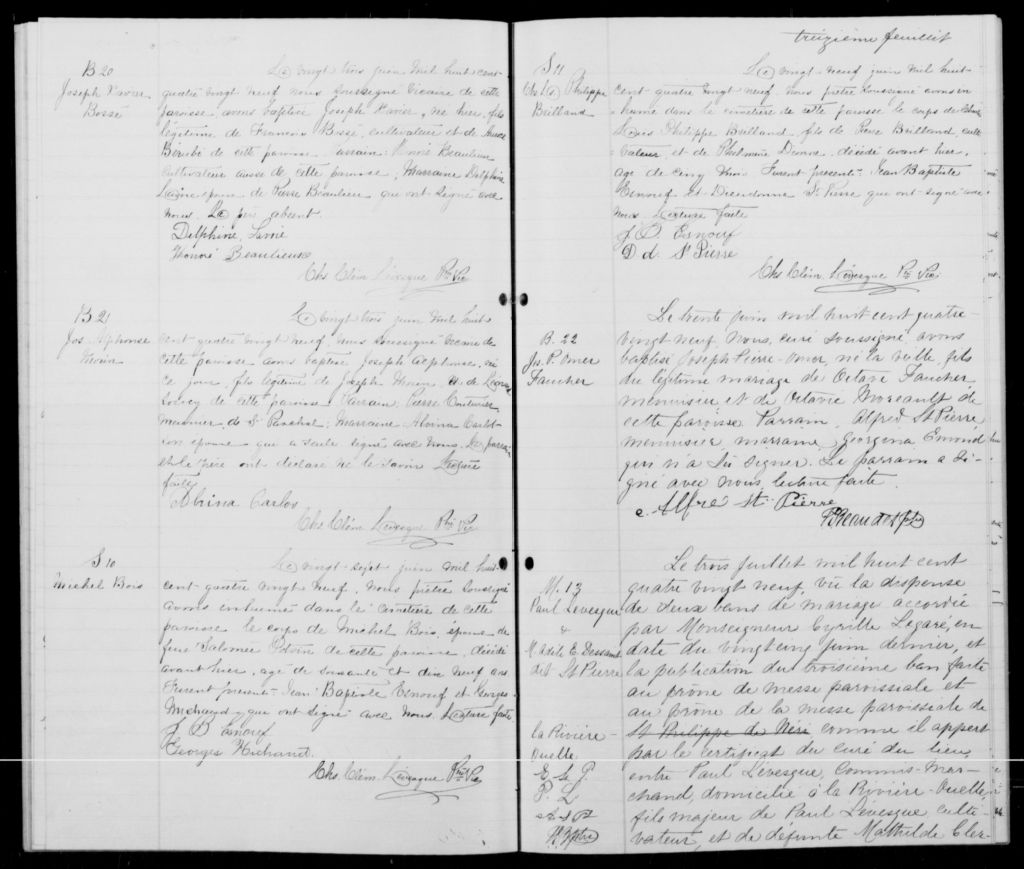 B 20
Joseph Xavier
Bossé
Le vingt trois juin mil huit cent
quatre vingt neuf nous soussigné vicaire de cette
paroisse avons baptisé Joseph Xavier, né hier, fils
légitime de François Bossé, cultivateur et de
Bérubé de cette paroisse. Parrain: Honoré Beaulieu
cultivateur aussi de cette paroisse, Marraine Delphine
épouse de Pierre Beaulieu qui ont signé avec
nous. Le père absent.
Delphine
Honoré Beaulieux
Chs Clém. Lévesque Ptre Vic
B 21
Jos. Alphonse
Morin
Le vingt trois juin mil huit
cent quatre vingt neuf, nous soussigné vicaire de
cette paroisse avons baptisé Joseph Alphonse, né
ce jour, fils légitime de Joseph Morin, et de
de cette paroisse. Parrain: Pierre Couturier
meunier, de St Paschal; Marraine Alvina Carlos
son épouse qui a seule signé avec nous. Le parrain
et le père ont déclaré ne le savoir Lecture
faite
Alvina Carlos
Chs Clém. Lévesque Ptre Vic
S 10
Michel Bois
Le vingt-sept juin mil huit
cent quatre vingt neuf, nous prêtre soussigné
avons inhumé dans le cimetière de cette
paroisse le corps de Michel Bois, époux de
feue Salomée Potvin de cette paroisse, décédé
avant hier, agé de soixante et dix neuf ans
Furent présents Jean Baptiste Esnouf et Georges
Michaud, que ont signé avec nous. Lecture faite
J B Esnouf
Georges Michaud
Chs Clém. Lévesque Ptre Vic
treizième feuillet
S 11
Chs Ls Philippe
Brilland
Le vingt-neuf juin mil huit
cent quatre vingt neuf nous prêtre soussigné avons in
humé dans le cimetière de cette paroisse le corps de Charles
Louis Philippe Brilland, fils de Pierre Brilland, culti
vateur, et de Philomène Dionne, décédé avant hier,
agé de cinq mois Furent présents Jean Baptiste
Esnouf et Dieudonné St Pierre que ont signé avec
nous. Lecture faite
J B Esnouf
D d. St Pierre
Chs Clém. Lévesque Ptre Vic
B. 22
Js. P. Omer
Faucher
Le trente juin mil huit cent quatre-
vingt neuf, Nous, curé soussigné, avons
baptisé Joseph-Pierre-Omer, né la veille, fils
du légitime mariage de Octave Faucher,
menuisier et de Octavie Moreault de
cette paroisse. Parrain, Alfred St Pierre,
menuisier, marraine, Georgena Emond
qui n'a su signer. Le parrain a si-
gné avec nous lecture faite.
Alfre St Pierre
Beaudet ptre
M. 13
Paul Lévesque
&
M. Adèle E. Dessaint
dit St Pierre
la Rivière-
Ouelle
Le trois juillet mil huit cent
quatre vingt neuf, vu la dispense
de deux bans de mariage accordée
par Monseigneur Cyrille Légaré, en
date du vingt cinq juin dernier, et
la publication du troisième ban faite
au prône de messe paroissiale et
au prône de la messe paroissiale de
St Philippe de Néri comme il appert
par le certificat du curé du lieu,
entre Paul Lévesque, Commis-Mar-
chand, domicilié à la Rivière-Ouelle,
fils majeur de Paul Lévesque, culti-
vateur, et de défunte Mathilde Cler-
E. G. P.
P. L